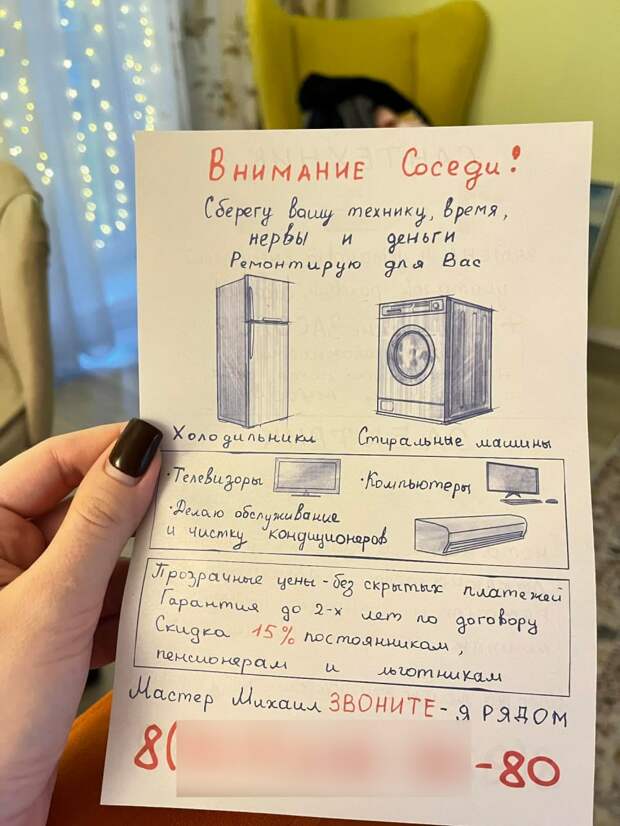 Внимание Соседи!
Сберегу вашу технику, время,
нервы и деньги
Ремонтирую для Вас
Холодильники Стиральные машины
·Телевизоры ·Компьютеры
·Делаю обслуживание
и чистку кондиционеров
Прозрачные цены - без скрытых платежей
Гарантия до 2-х лет по договору
Скидка 15% постоянникам,
пенсионерам и льготникам
Мастер Михаил ЗВОНИТЕ - я РЯДОМ
8( -80